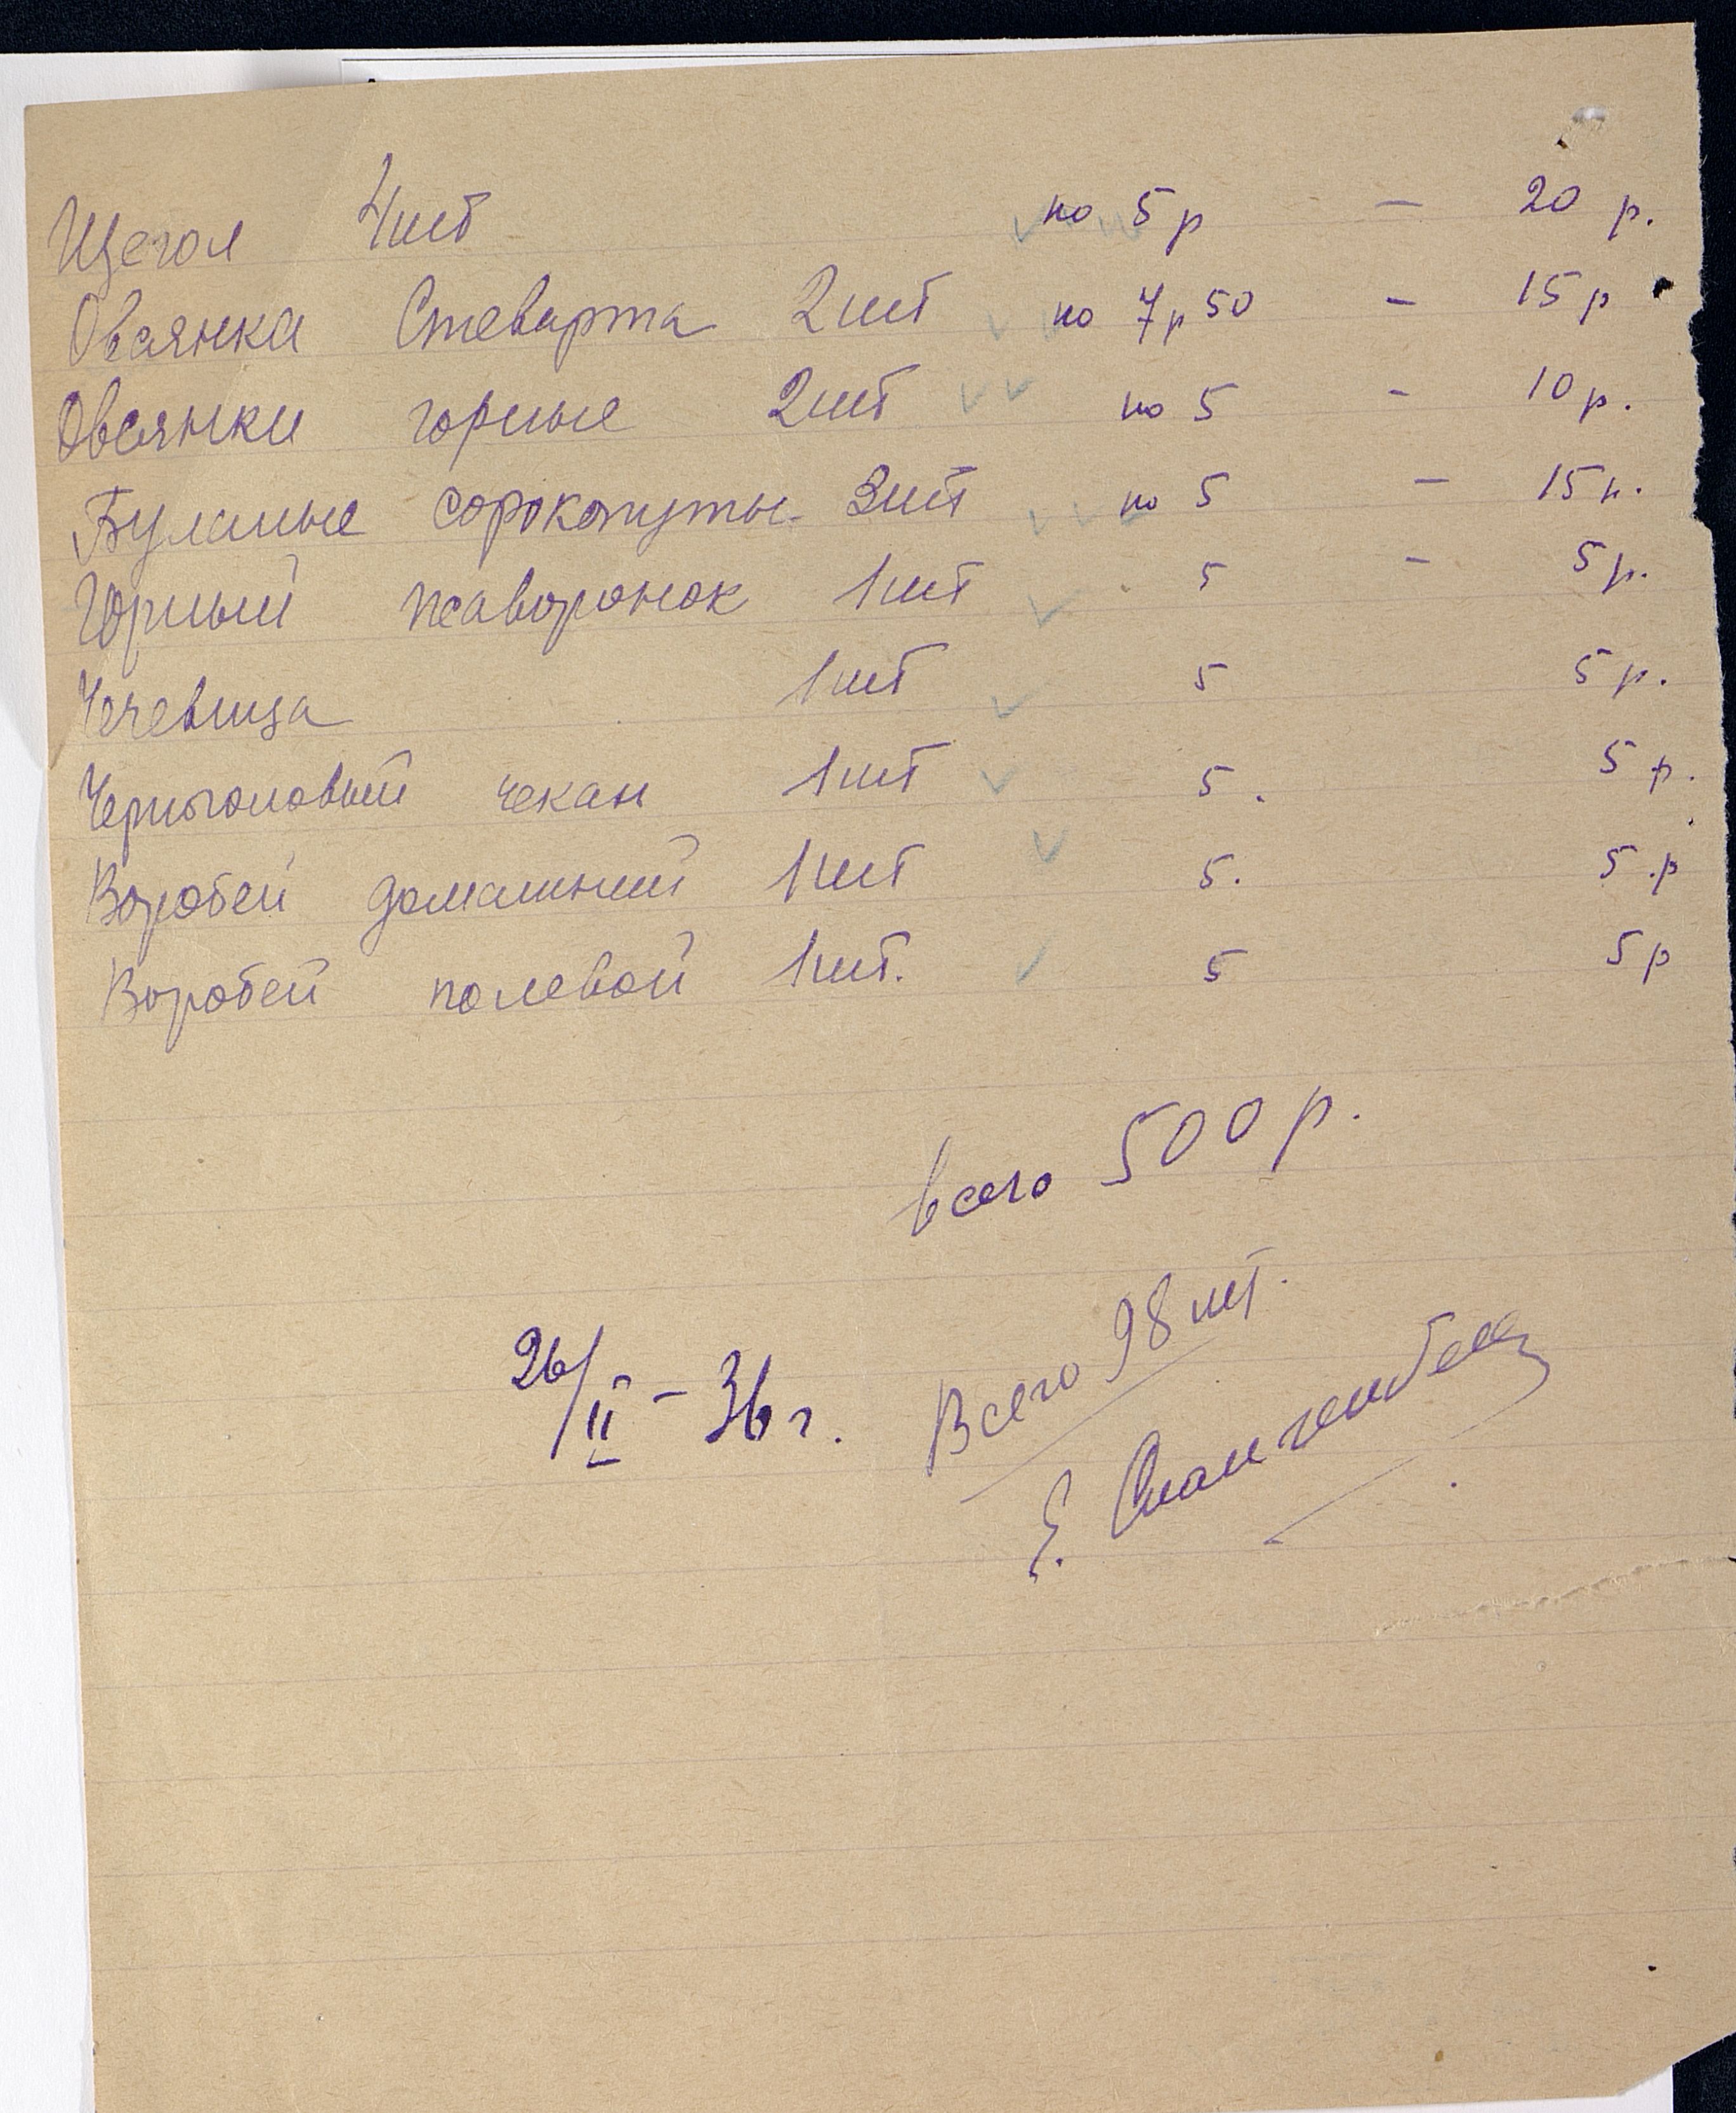 Щегол 4шт по 5р — 20 р.
Овсянка Стеварта 2шт по 7р50 — 15р
Овсянки горные 2шт по 5 - 10р.
Буланые сорокопуты 3шт по 5 — 15р.
Горный жаворонок 1шт 5 — 5р.
Чечевица 1шт 5 5р.
Черноголовый чекан 1шт 5. 5р.
Воробей домашний 1шт 5. 5.р
Воробей полевой 1шт. 5 5р
всего 500р.
Всего 98 шт.
26/II – 36г.
Е.